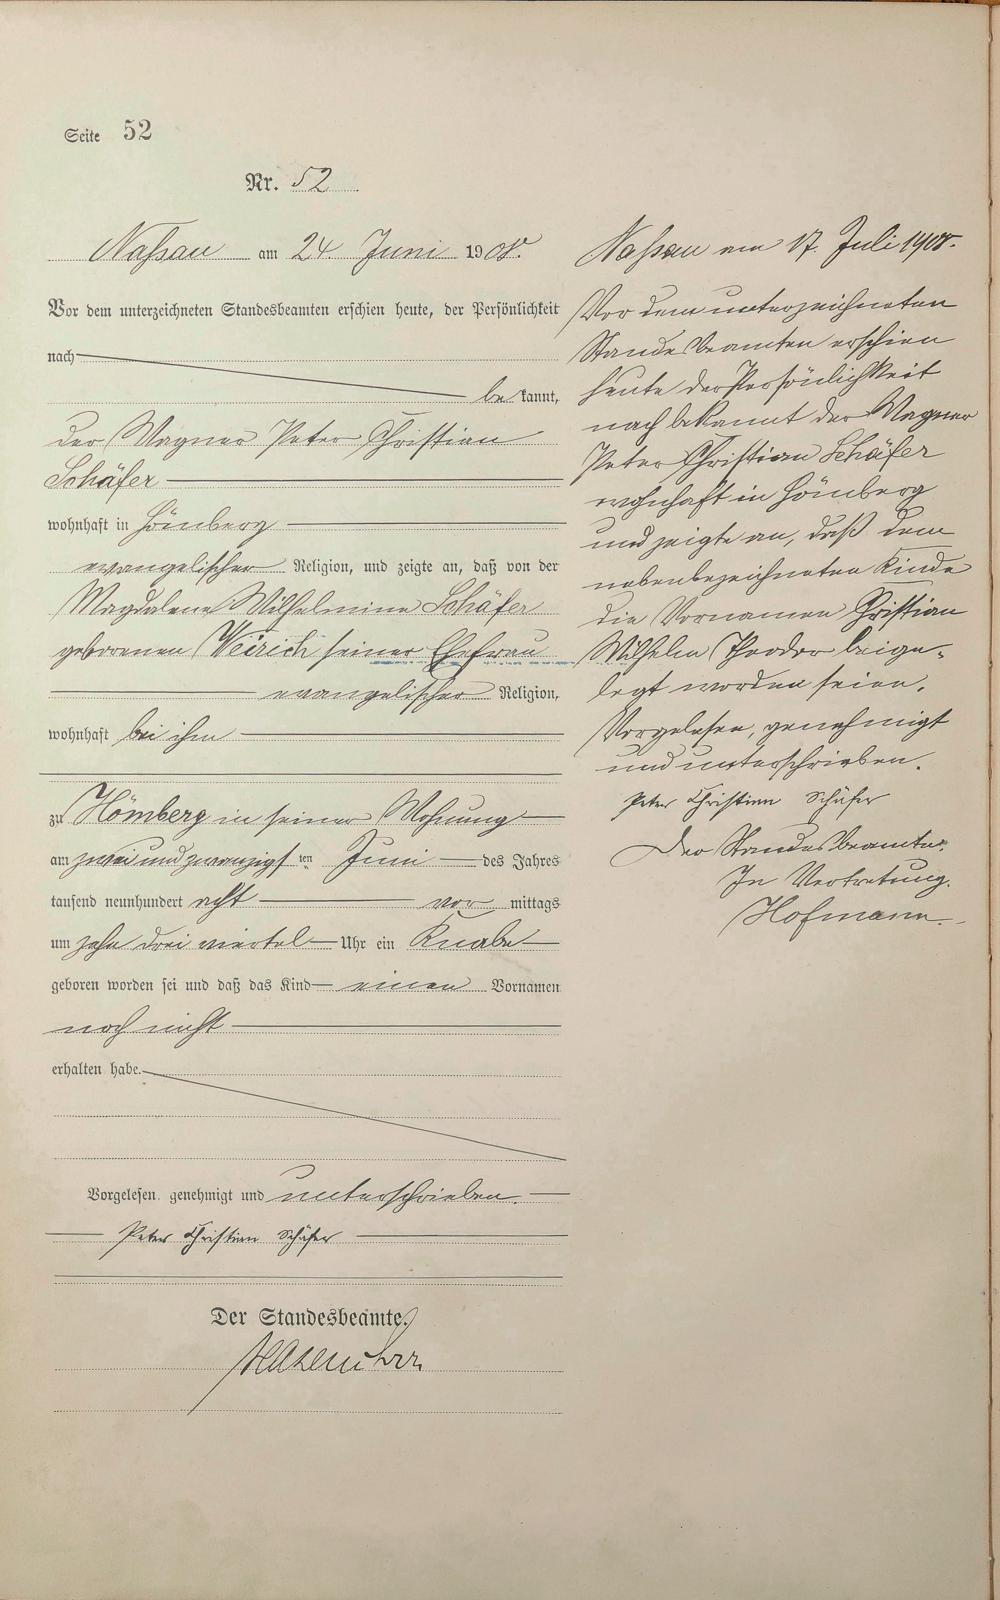 Seite 52
Nr. 52
Nassau am 24 Juni 1908.
Vor dem unterzeichneten Standesbeamten erschien heute, der Persönlichkeit
nach
be kannt,
der Wagner Peter Christian
Schäfer
wohnhaft in Hömberg
evangelischer Religion, und zeigte an, daß von der
Magdalene Wilhelmine Schäfer
geborenen Weirich seiner Ehefrau
evangelischer Religion,
wohnhaft bei ihm
zu Hömberg in seiner Wohnung
am zwei und zwanzigsten Juni des Jahres
tausend neunhundert acht vor mittags
um zehn drei viertel Uhr ein Knabe
geboren worden sei und daß das Kind einen Vornamen
noch nicht
erhalten habe.
Vorgelesen, genehmigt und unterschrieben.
Peter Christian Schäfer
Der Standesbeamte.
Nassau am 17. Juli 1908.
Vor dem unterzeichneten
Standesbeamten erschien
heute der Persönlichkeit
nach bekannt der Wagner
Peter Christian Schäfer
wohnhaft in Hömberg
und zeigte an, daß dem
nebenbezeichneten Kinde
die Vornamen Christian
Wilhelm Theodor beige-
legt worden seien.
Vorgelesen, genehmigt
und unterschrieben.
Peter Christian Schäfer
Der Standesbeamte.
In Vertretung.
Hofmann.